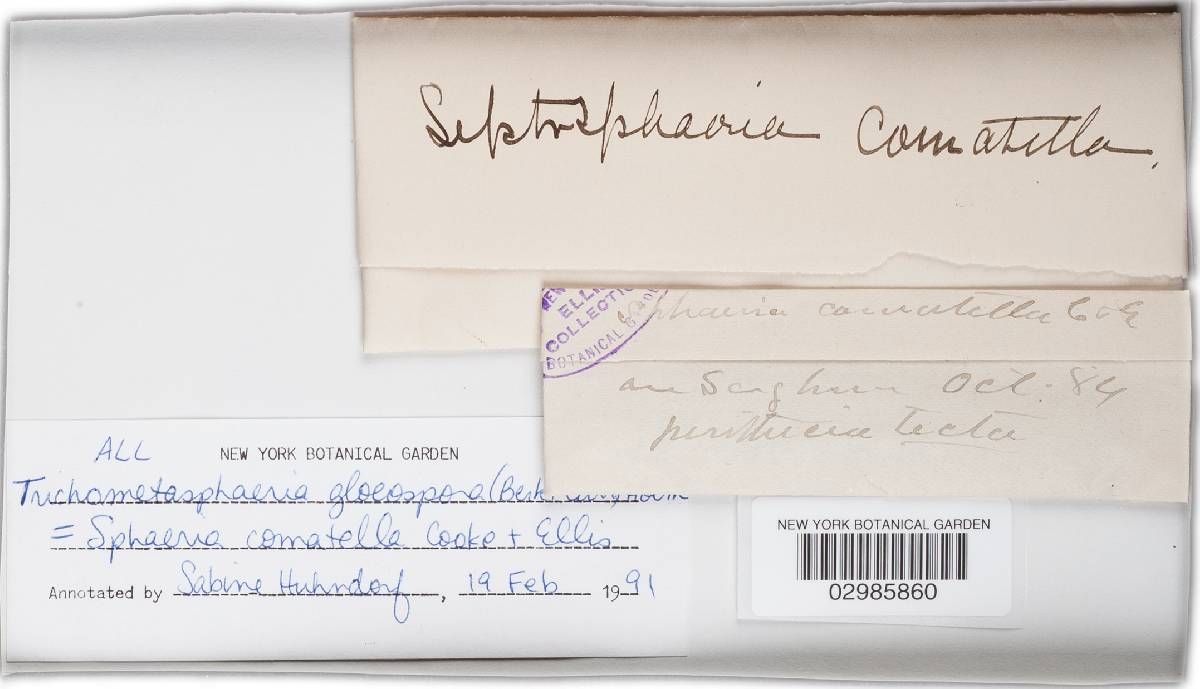 Leptosphaeria comatella.
NEW
ELLIS
COLLECTION
BOTANICAL
Sphaeria comatella C&E
on Sorghum Oct. 84
perithecia tecta
ALL NEW YORK BOTANICAL GARDEN
Trichometasphaeria gloeospora (Berk.
= Sphaeria comatella Cooke + Ellis
Annotated by Sabine Huhndorf, 19 Feb 1991
NEW YORK BOTANICAL GARDEN
02985860